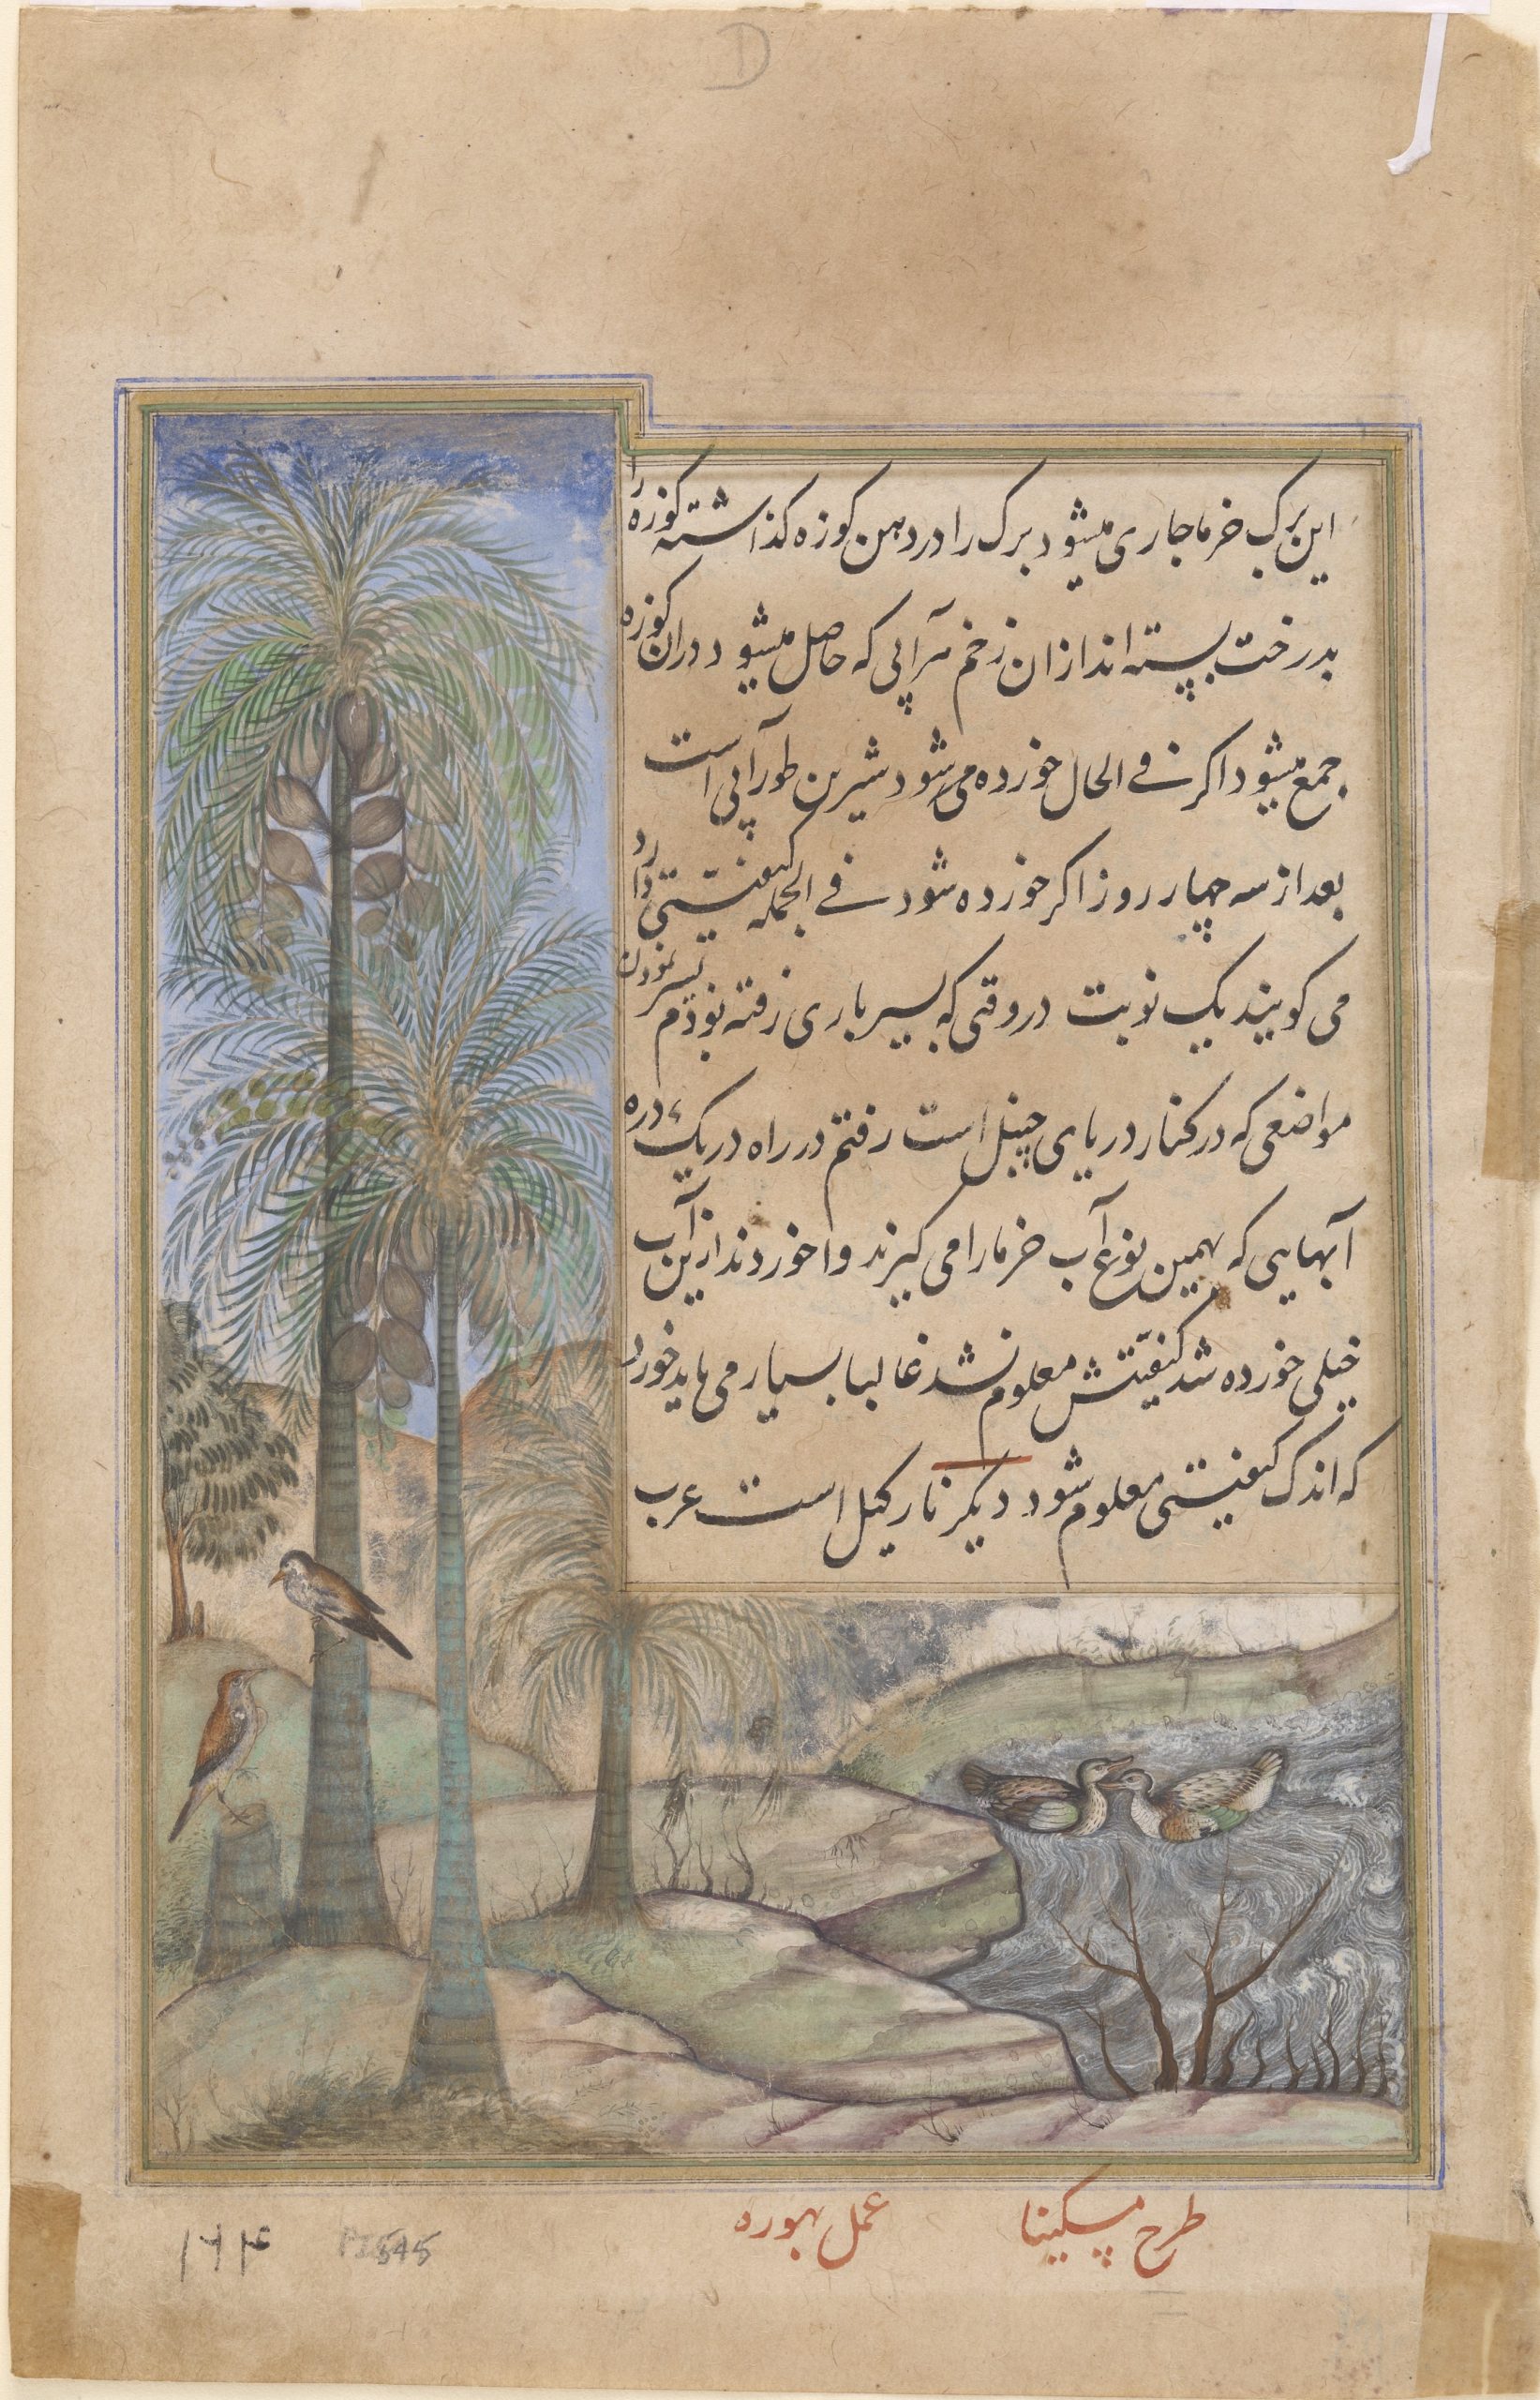 D
این برک خرما جاری میشود برک را در دهن کوزه کذاشته کوزه را
بدرخت بسته اند ازان زخم هر آبی که حاصل میشود دران کوزه
جمع میشود اکر فے الحال خورده می شود شیرین طور آبی است
بعد از سه چهار روز اکر خورده شود فے الجمله کیفیتی دارد
می کویند یک نوبت در وقتی که بسیر باری رفته بودم بسیر نمودن
مواضعی که در کنار دریای چنبل است رفتم در راه در یک دره
آنهایی که بهمین نوع آب خرما را می کیرند وا خوردند ازین آب
خیلی خورده شد کیفیتش معلوم نشد غالبا بسیار می باید خورد
که اندک کیفیتی معلوم شود دیکر نارکیل است عرب
طرح مسکینا
عمل بهوره
۱۶۴
545